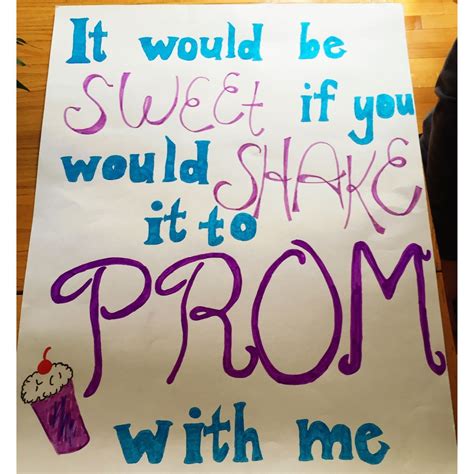 It would be
SWEEt if you
would SHAKE
it to
PROM
with me